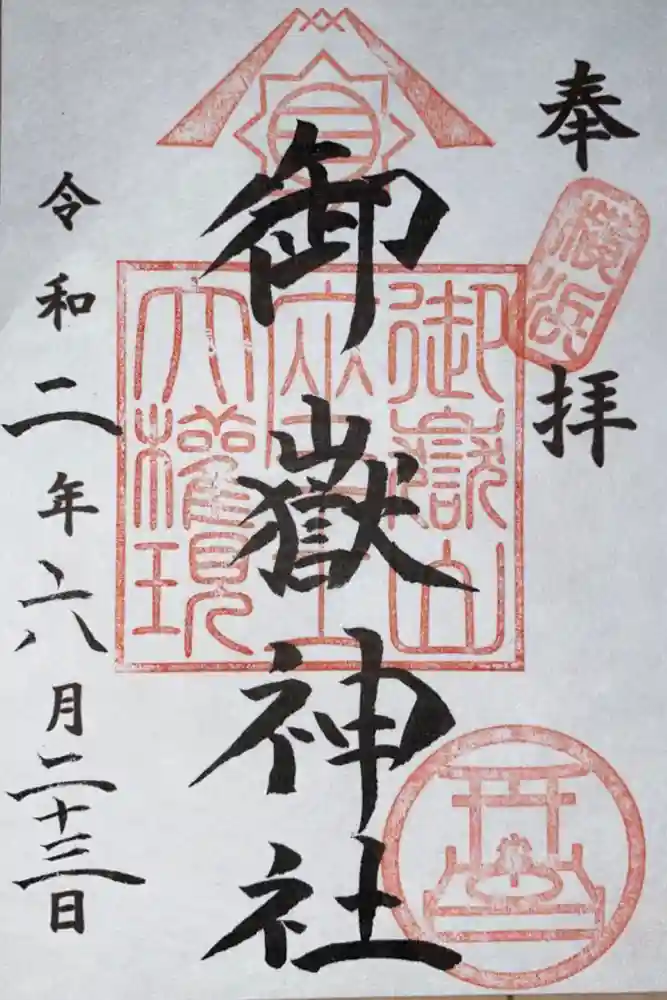 奉拝
横浜
御嶽神社
御嶽山
座王
大権現
令和二年六月二十三日